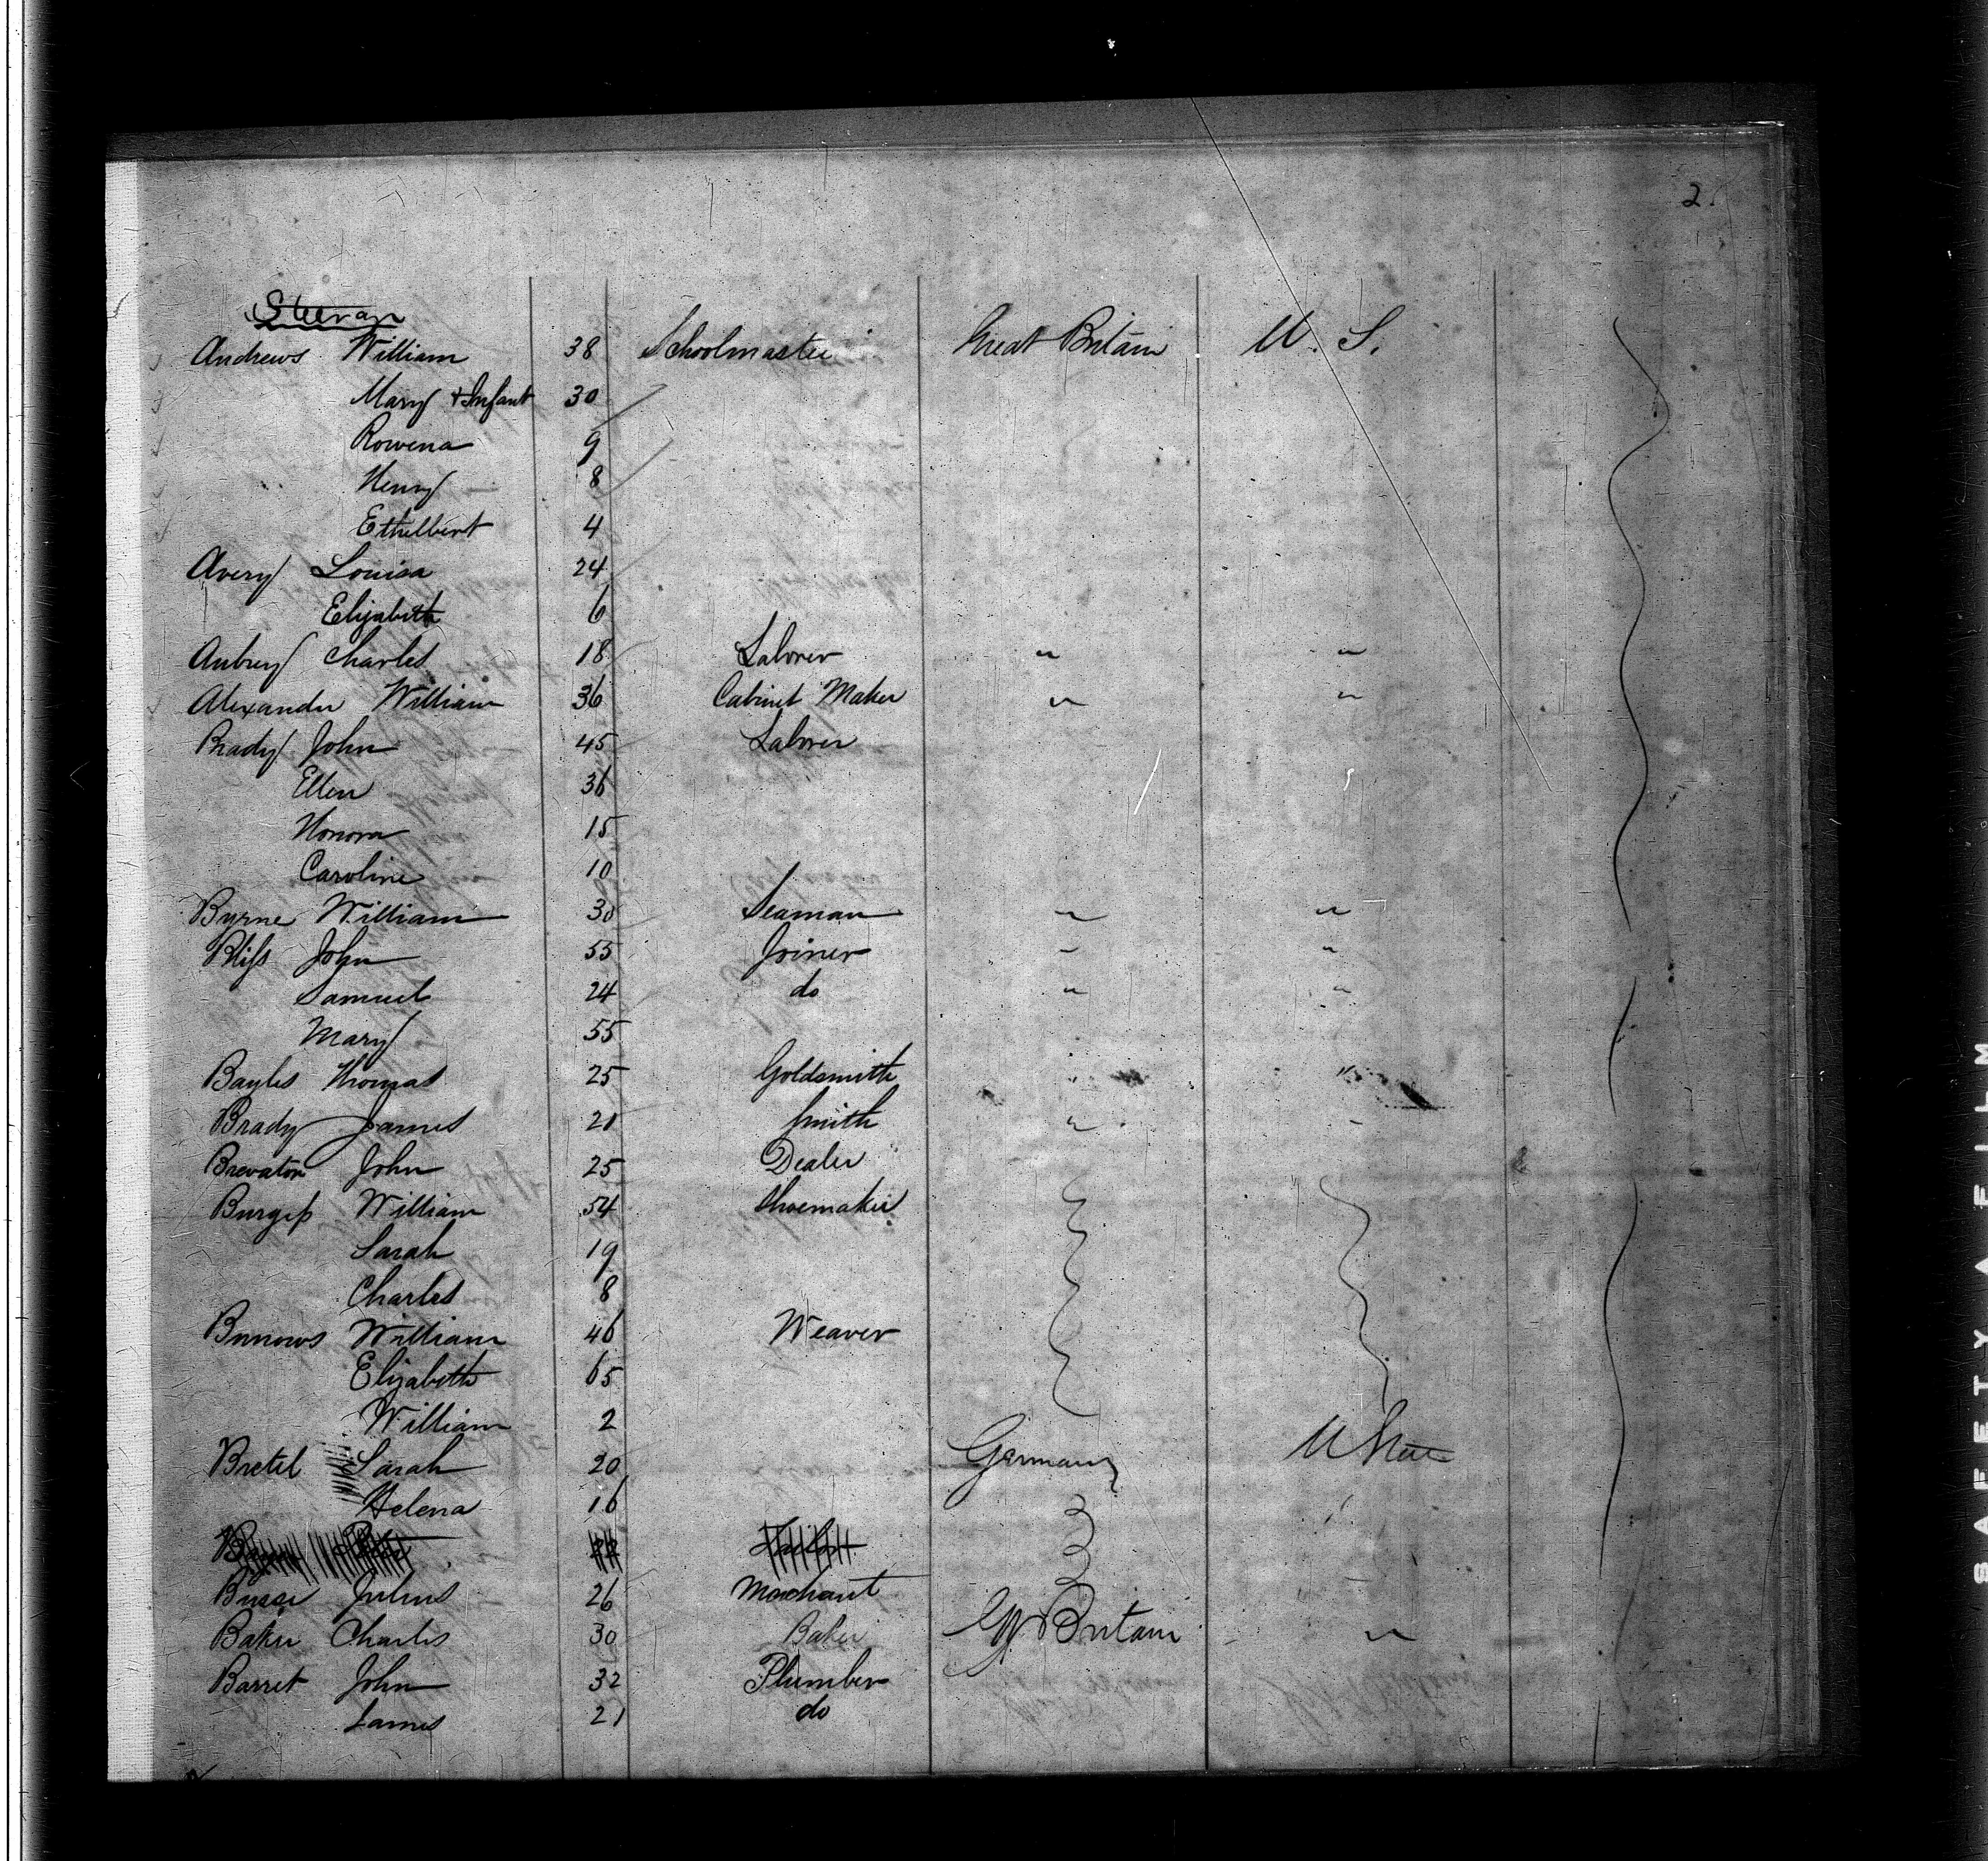 2.
Steerage
Andrews William 38 Schoolmaster Great Britain U. S.
Mary + Infant 30
Rowena 9
Henry 8
Ethelbert 4
Avery Louisa 24
Elizabeth 6
Aubrey Charles 18 Laborer " "
Alexander William 36 Cabinet Maker " "
Brady John 45 Laborer
Ellen 36
Honora 15
Caroline 10
Byrne William 30 Seaman " "
Bliss John 55 Joiner " "
Samuel 24 do " "
Mary 55
Bayles Thomas 25 Goldsmith " "
Brady James 21 Smith " "
Brevaton John 25 Dealer
Burgess William 54 Shoemaker
Sarah 19
Charles 8
Burrows William 46 Weaver
Elizabeth 65
William 2
Bretel Sarah 20 Germany
Helena 16
Busse Julius 26 Merchant
Baker Charles 30 Baker Gt Britain "
Barret John 32 Plumber
James 21 do
SAFETY A FILM